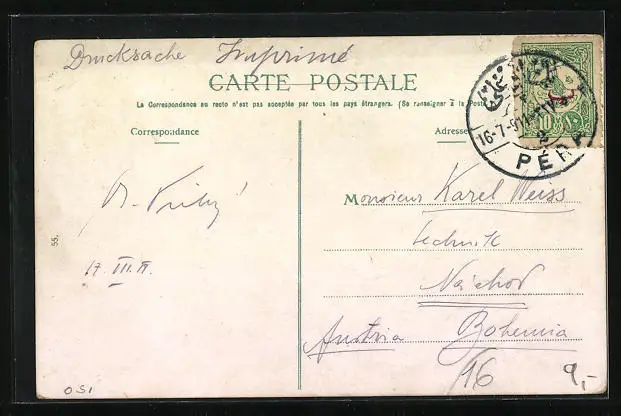 Drucksache Imprimé
CARTE POSTALE
La Correspondance au recto n'est pas acceptée par tous les pays étrangers. (Se renseigner à la Poste
Correspondance
Adresse
16-7-911
2
PÉRA
10
Monsieur Karel Weiss
technik
Náchod
Austria Bohemia
17. III.
55.
051
/16
9,-